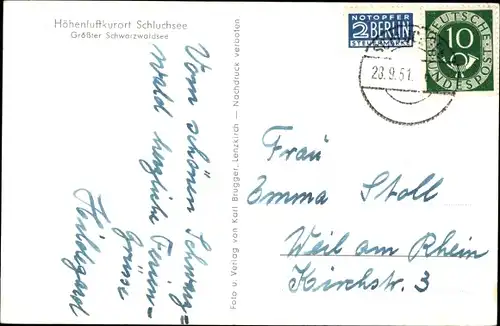 Höhenluftkurort Schluchsee
Größter Schwarzwaldsee
Vom schönen Schwarz=
wald herzliche Ferien-
Grüsse
Hildegard
Foto u. Verlag von Karl Brugger, Lenzkirch — Nachdruck verboten
NOTOPFER
2 BERLIN
STEUERMARKE
DEUTSCHE
BUNDESPOST
10
28.9.51.
Frau
Emma Stoll
Weil am Rhein
Kirchstr. 3